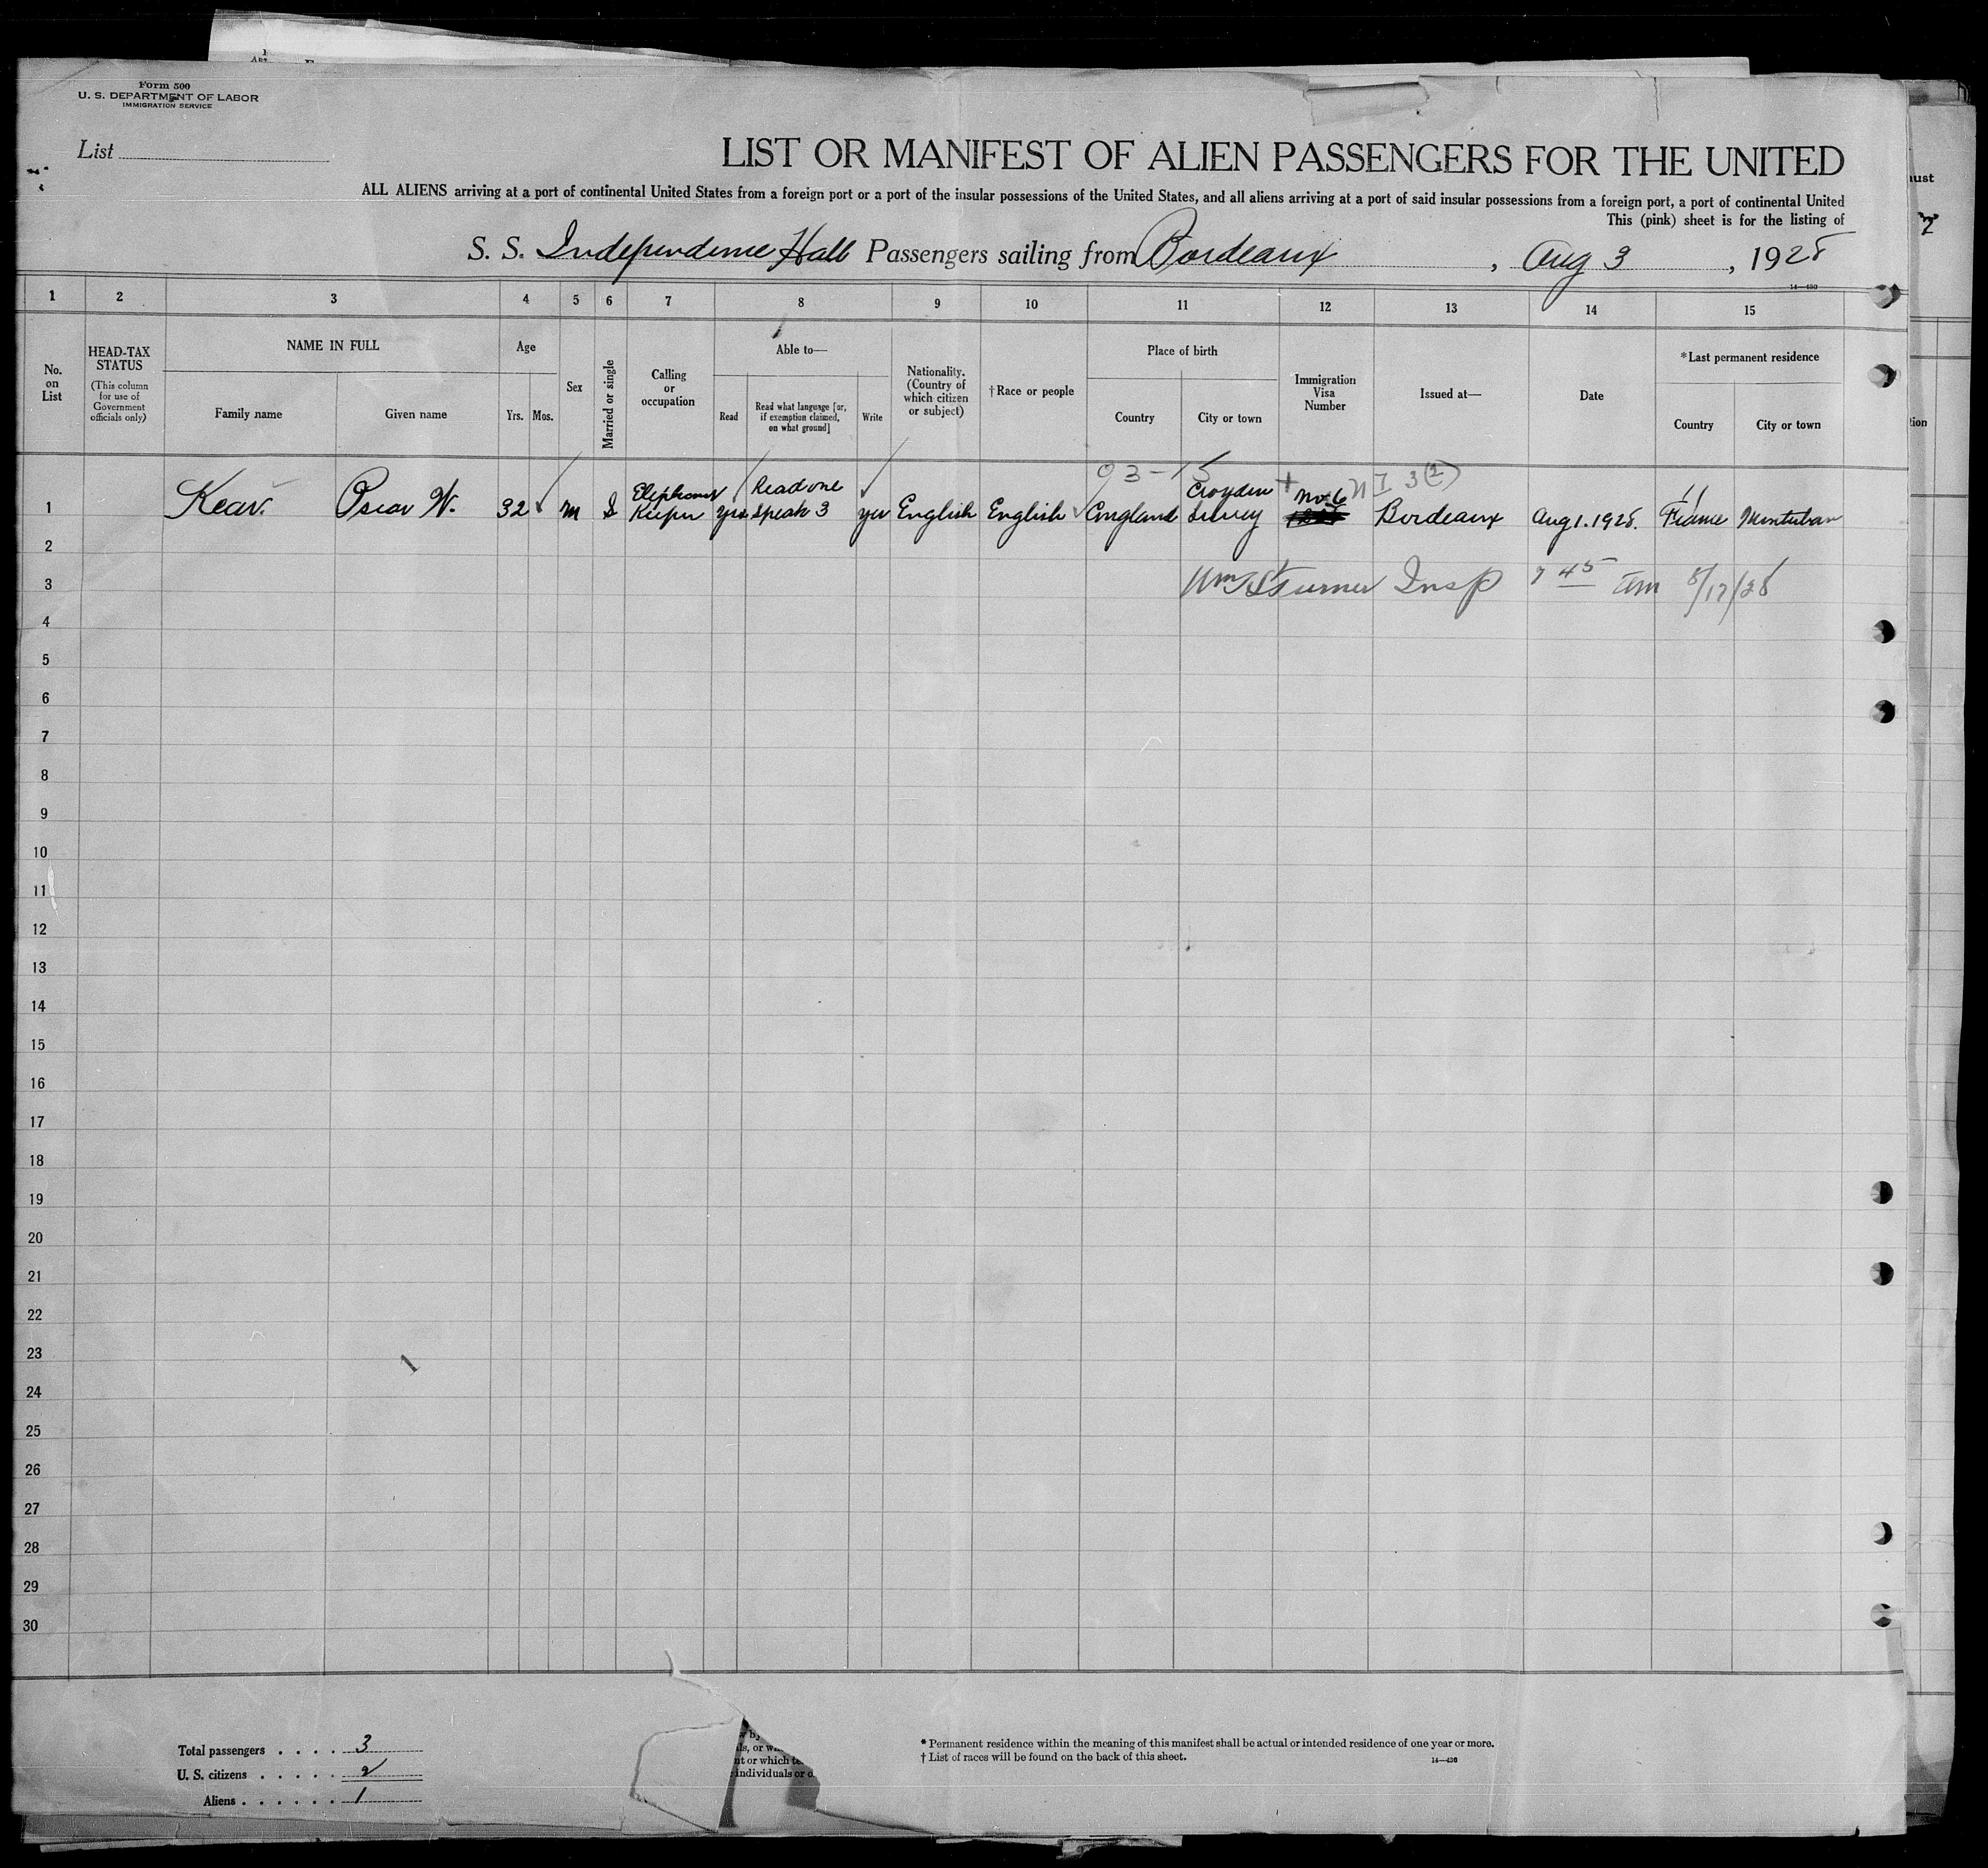 Form 500
U. S. DEPARTMENT OF LABOR
IMMIGRATION SERVICE
List
LIST OR MANIFEST OF ALIEN PASSENGERS FOR THE UNITED
ALL ALIENS arriving at a port of continental United States from a foreign port or a port of the insular possessions of the United States, and all aliens arriving at a port of said insular possessions from a foreign port, a port of continental United
This (pink) sheet is for the listing of
S. S. Independence Hall Passengers sailing from Bordeaux, Aug 3, 1928
14—430
1 2 3 4 5 6 7 8 9 10 11 12 13 14 15
No. on List
HEAD-TAX STATUS
(This column for use of Government officials only)
NAME IN FULL
Family name
Given name
Age
Yrs.
Mos.
Sex
Married or single
Calling or occupation
Able to—
Read
Read what language [or, if exemption claimed, on what ground]
Write
Nationality. (Country of which citizen or subject)
†Race or people
Place of birth
Country
City or town
Immigration Visa Number
Issued at—
Date
*Last permanent residence
Country
City or town
93-15
N I 3 (2)
1 Kear. Oscar W. 32 m S Elephant Keeper yes Read one speak 3 yes English English England Croyden Surrey No 6 Bordeaux Aug 1. 1928. France Montuban
2
3 Wm Turner Insp 7 45 am 8/17/28
4
5
6
7
8
9
10
11
12
13
14
15
16
17
18
19
20
21
22
23
24
25
26
27
28
29
30
Total passengers . . . . 3
U. S. citizens . . . . . 2
Aliens . . . . . . 1
* Permanent residence within the meaning of this manifest shall be actual or intended residence of one year or more.
† List of races will be found on the back of this sheet.
14—430